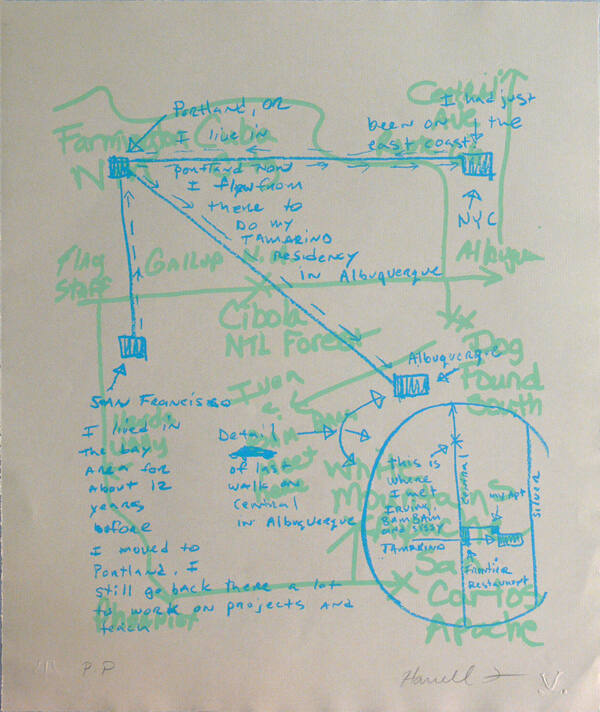 Portland, OR
I live in
Portland now
I flew from
there to
Do my
TAMARIND
residency
in Albuquerque
I had just
been on the
east coast
NYC
Albuquerque
SAN FRANCISCO
I lived in
the bay
Area for
About 12
years
before
I moved to
Portland. I
still go back there a lot
to work on projects and
teach
Detail
of last
walk on
Central
in Albuquerque
this is
where
I met
Irving,
BamBam
and sissy
TAMARIND
Central
my Apt
Silver
Frontier
Restaurant
Farmington
Cuba
Central
Ave
Flag
staff
Gallup
Albuque
Cibola
NTL Forest
Dog
Found
South
White
Mountains
Apache
San
Carlos
Apache
P.P
Harrell